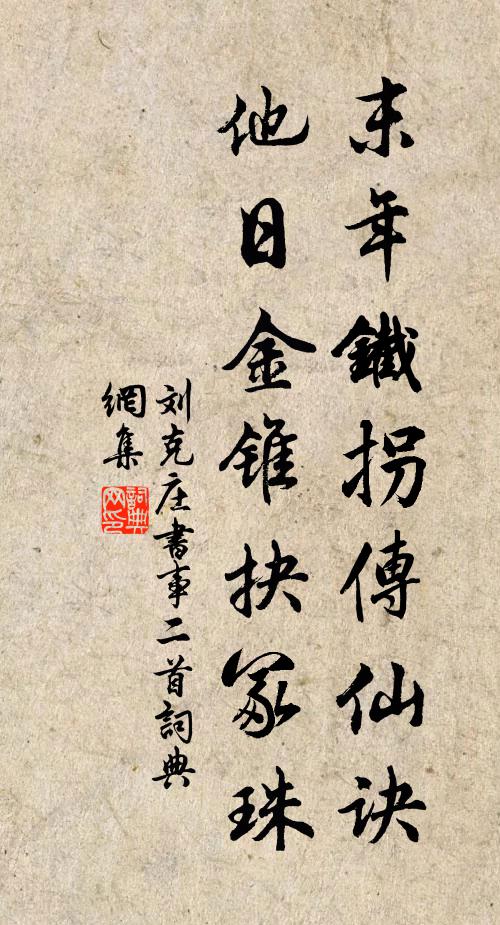 末年鐵拐傳仙诀
他日金錐抉冢珠
刘克庄書事二首詞典
網集
詞典网印